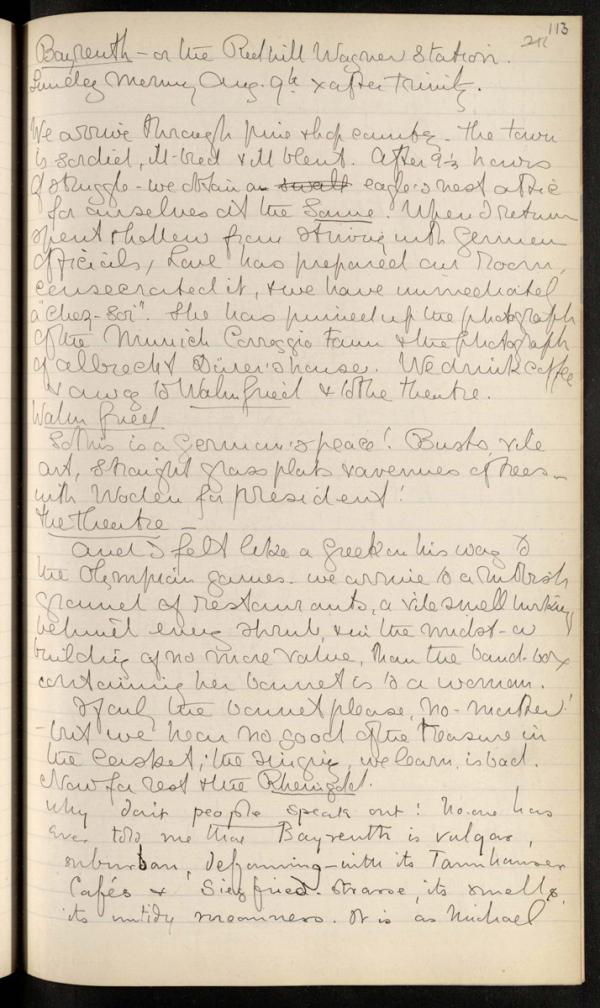 113
Bayreuth – or the Redhill Wagner Station.
Sunday Morning Aug. 9th x after Trinity.
We arrive through pine & hop country. The town
is sordid, ill-bred & ill blent. After 2½ hours
of struggle – we obtain an small eagle's nest attic
for ourselves at the Sonne. When I return
spent & hollow from striving with German
officials, Love has prepared our room,
consecrated it, & we have immediately
a "chez-soi". She has pinned up the photograph
of the Munich Correggio faun & the photograph
of Albrecht Dürer's house. We drink coffee
& away to Wahnfried & to the theatre.
Wahnfried
So this is a German's peace! Busts, vile
art, straight grass plats & avenues of trees –
with Woden for president!
The theatre –
And I felt like a Greek on his way to
the Olympian games. We arrive to a rubbish
ground of restaurants, a vile smell lurking
behind every shrub, & in the midst – a
building of no more value, than the band-box
containing her bonnet is to a woman.
If only the bonnet please, no-matter!
– but we hear no good of the treasure in
the casket; the singing, we learn, is bad.
Now for rest & the Rheingold.
Why don't people speak out! No-one has
ever told me that Bayreuth is vulgar,
suburban, deforming – with its Tannhauser
Cafés & Siegfried-strasse, its smells,
its untidy meanness. It is as Michael